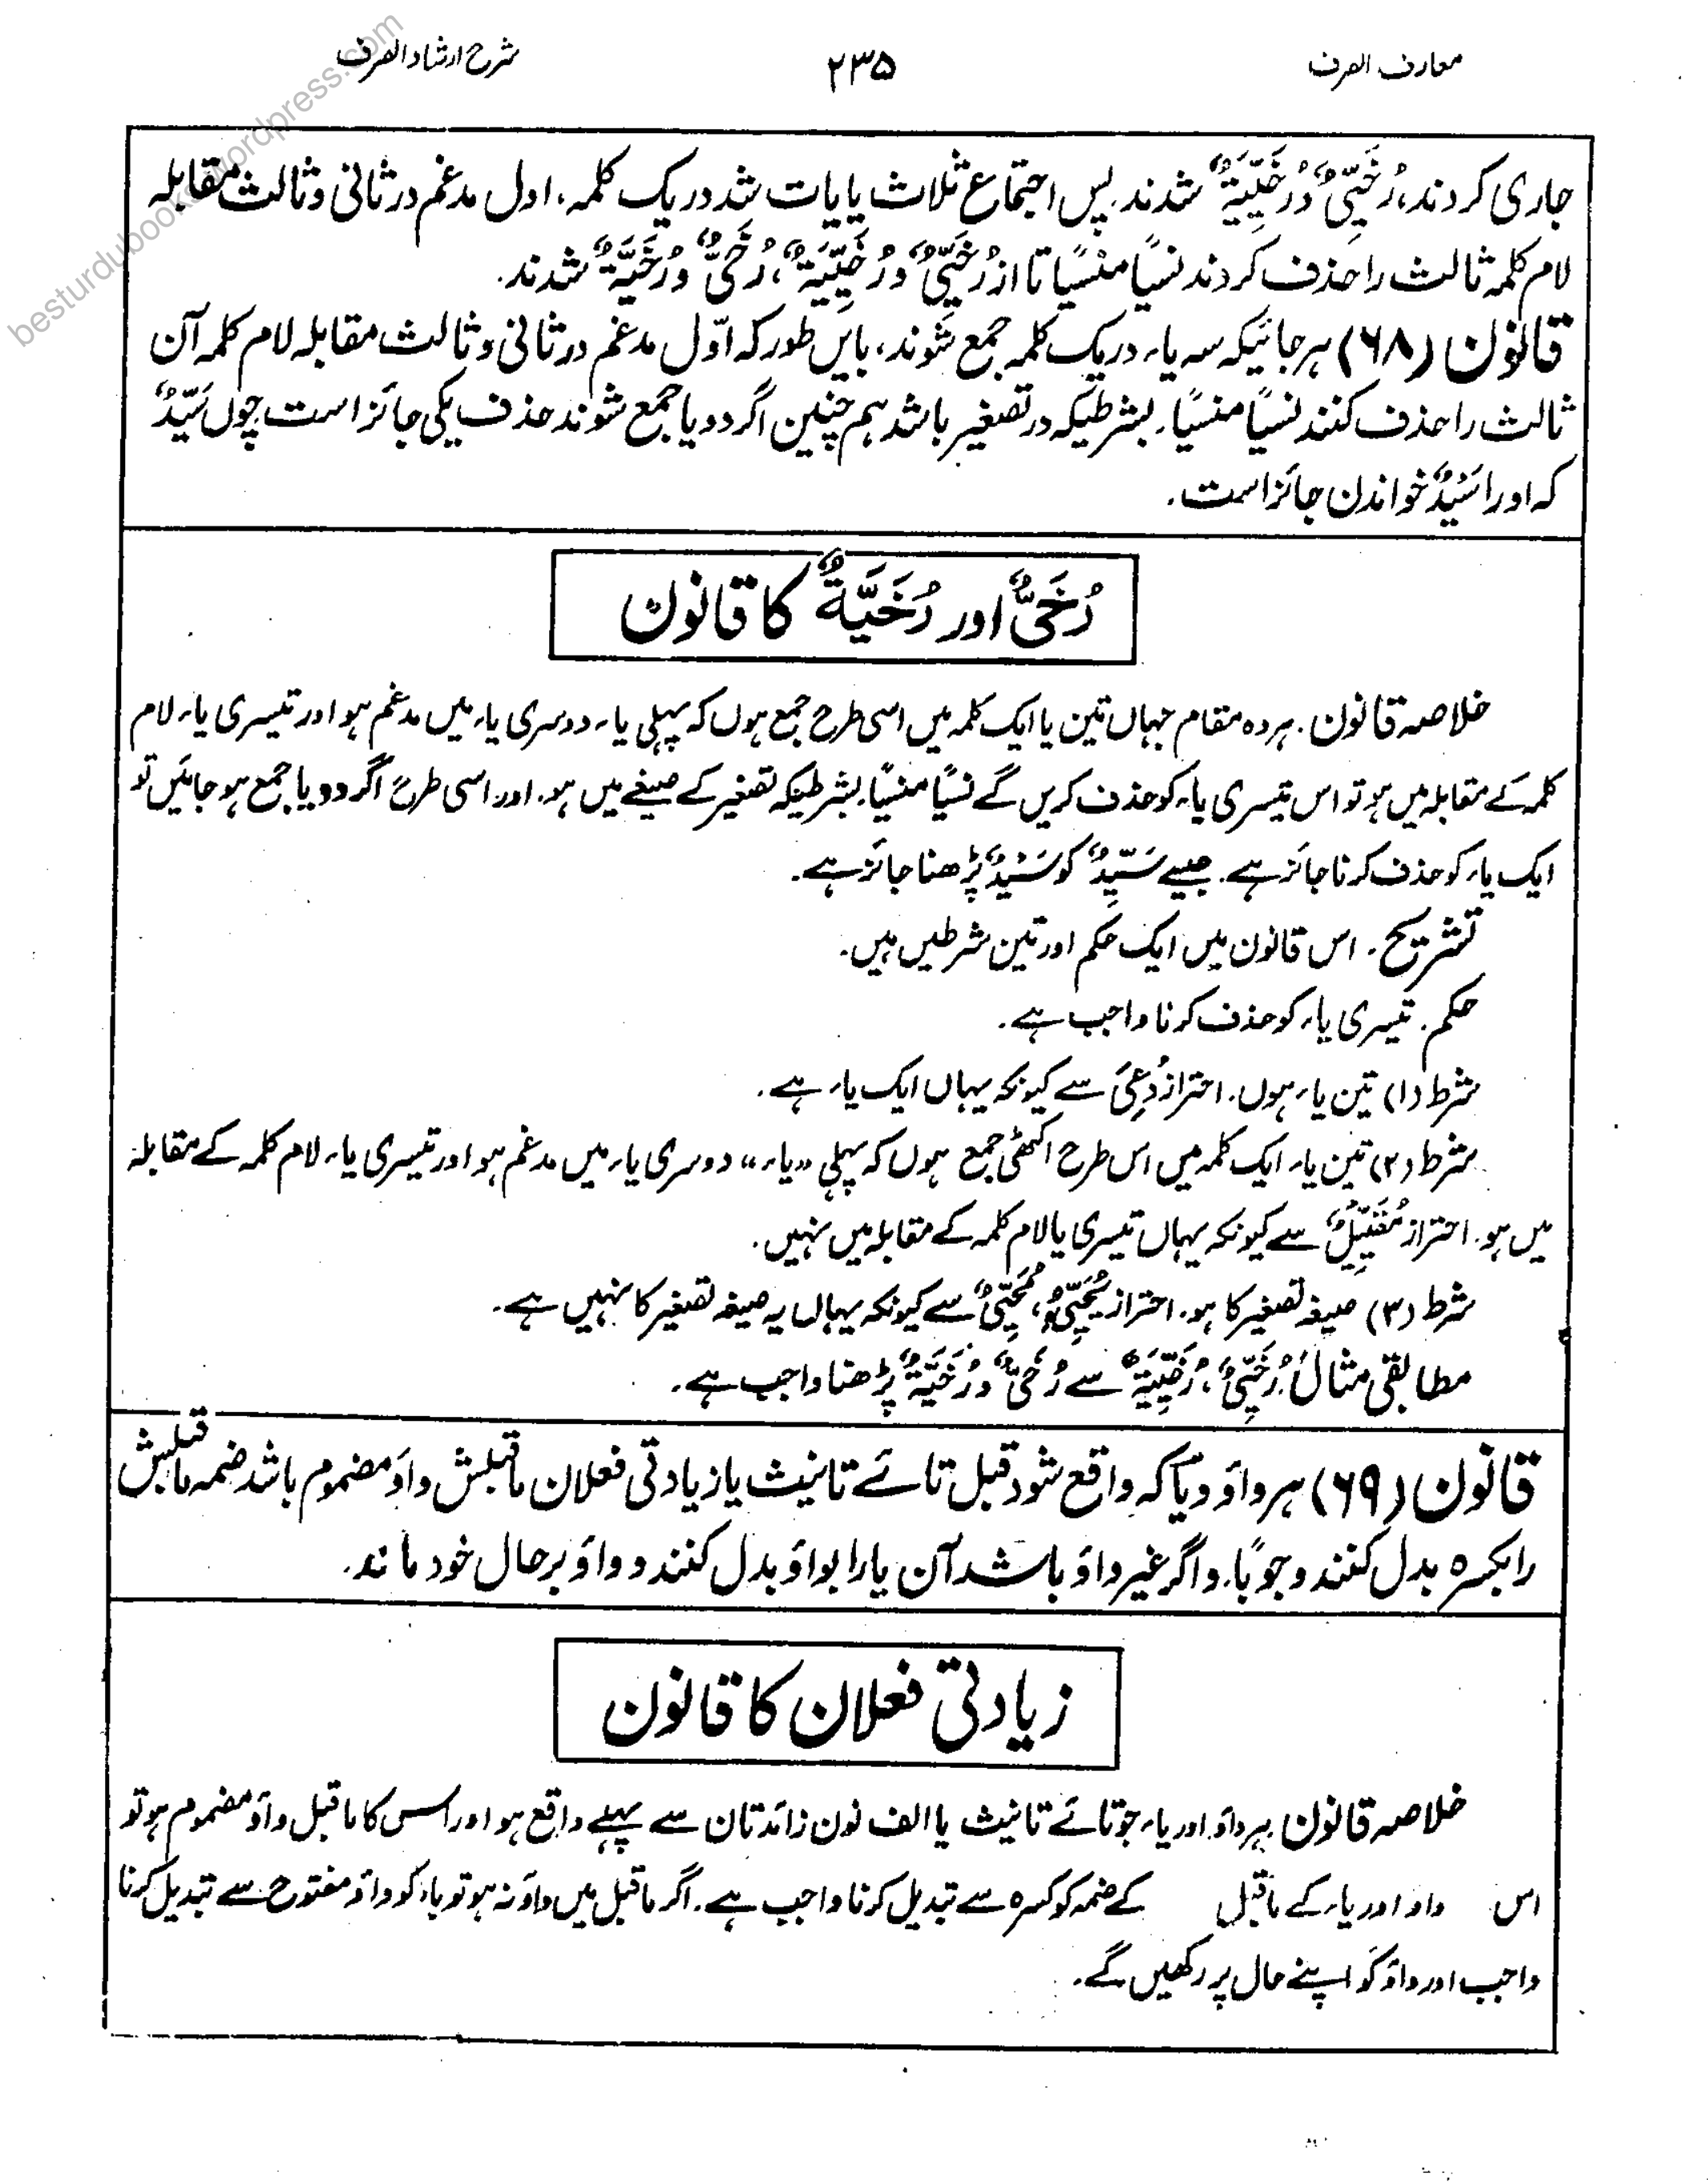 معارف الصرف
۲۳۵
شرح ارشاد الصرف
besturdubooks.wordpress.com
جاری کردند، رُخَيِّيٌ ورُخَيِّيَةٌ شدند پس اجتماع ثلاث یایات شد در یک کلمہ، اول مدغم در ثانی و ثالث مقابلہ
لام کلمہ ثالث را حذف کردند نسیًا منسیًا تا از رُخَيِّيٌ و رُخَيِّيَةٌ، رُخَيٌّ ورُخَيَّةٌ شدند.
قانون (۶۸) ہر جائیکہ سہ یاء در یک کلمہ جمع شوند، بایں طور کہ اوّل مدغم در ثانی و ثالث مقابلہ لام کلمہ آن
ثالث را حذف کنند نسیًا منسیًا، بشرطیکہ در تصغیر باشد ہم چنین اگر دو یا جمع شوند حذف یکی جائز است چوں سَيِّدٌ
کہ او را سَيْدٌ خواندن جائز است.
رُخَيٌّ اور رُخَيَّةٌ کا قانون
خلاصہ قانون. ہر وہ مقام جہاں تین یا ایک کلمہ میں اسی طرح جمع ہوں کہ پہلی یاء دوسری یاء میں مدغم ہو اور تیسری یاء لام
کلمہ کے مقابلہ میں ہو تو اس تیسری یاء کو حذف کریں گے نسیًا منسیًا بشرطیکہ تصغیر کے صیغے میں ہو. اور اسی طرح اگر دو یا جمع ہو جائیں تو
ایک یاء کو حذف کرنا جائز ہے. جیسے سَيِّدٌ کو سَيْدٌ پڑھنا جائز ہے.
تشریح. اس قانون میں ایک حکم اور تین شرطیں ہیں.
حکم. تیسری یاء کو حذف کرنا واجب ہے.
شرط (۱) تین یاء ہوں. احتراز دُعِيَ سے کیونکہ یہاں ایک یاء ہے.
شرط (۲) تین یاء ایک کلمہ میں اس طرح اکٹھی جمع ہوں کہ پہلی "یاء" دوسری یاء میں مدغم ہو اور تیسری یاء لام کلمہ کے مقابلہ
میں ہو. احتراز مُقَيِّيلٌ سے کیونکہ یہاں تیسری یا لام کلمہ کے مقابلہ میں نہیں.
شرط (۳) صیغہ تصغیر کا ہو. احتراز يُحَيِّيُ، مُحَيِّيٌ سے کیونکہ یہاں یہ صیغہ تصغیر کا نہیں ہے.
مطابقی مثال رُخَيِّيٌ، رُخَيِّيَةٌ سے رُخَيٌّ ورُخَيَّةٌ پڑھنا واجب ہے.
قانون (۶۹) ہر واؤ ویا کہ واقع شود قبل تائے تانیث یا زیادتی فعلان ماقبلش واؤ مضموم باشد ضمہ ماقبلش
را بکسرہ بدل کنند وجوبًا. واگر غیر واؤ باشد آن یا را بواؤ بدل کنند و واؤ بر حال خود ماند.
زیادتی فعلان کا قانون
خلاصہ قانون ہر واؤ اور یاء جو تائے تانیث یا الف نون زائدتان سے پہلے واقع ہو اور اس کا ماقبل واؤ مضموم ہو تو
اس واو اور یاء کے ماقبل کے ضمہ کو کسرہ سے تبدیل کرنا واجب ہے. اگر ماقبل میں واؤ نہ ہو تو یاء کو واؤ مفتوح سے تبدیل کرنا
واجب اور واؤ کو اپنے حال پر رکھیں گے.